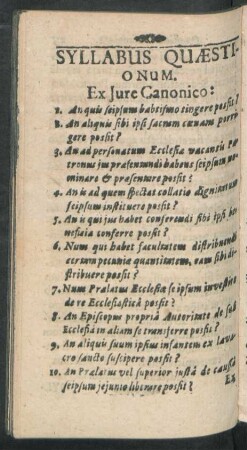 SYLLABUS QUÆSTI-
ONUM.
Ex Jure Canonico:
1. An quis seipsum babtismo tingere possit?
2. An aliquis sibi ipsi sacram cœnam porri-
gere possit?
3. An ad personatum Ecclesiæ vacantis Pa-
tronus jus præsentandi habens seipsum no-
minare & præsentare possit?
4. An is ad quem spectat collatio dignitatum
seipsum instituere possit?
5. An is qui jus habet conferendi sibi ipsi be-
neficia conferre possit?
6. Num qui habet facultatem distribuendi
certam pecuniæ quantitatem, eam sibi di-
stribuere possit?
7. Num Prælatus Ecclesiæ se ipsum investire
de re Ecclesiastica possit?
8. An Episcopus propriâ Autoritate de suâ
Ecclesiâ in aliam se transferre possit?
9. An aliquis suum ipsius infantem ex lava-
cro sancto suscipere possit?
10. An Prælatus vel superior justâ de causâ
seipsum jejunio liberare possit?
Ex